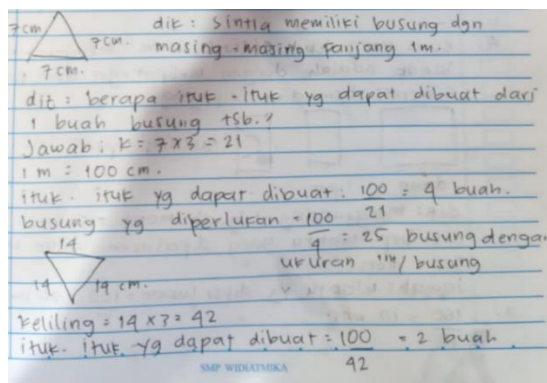 7cm
7cm.
7 cm.
dik : Sintia memiliki busung dgn
masing-masing panjang 1m.
dit : berapa ituk-ituk yg dapat dibuat dari
1 buah busung tsb.?
Jawab : k = 7 x 3 = 21
1 m = 100 cm.
ituk-ituk yg dapat dibuat : 100/21 = 4 buah.
busung yg diperlukan = 100/4 = 25 busung denga
ukuran 1m/busung
14
14
14 cm.
Keliling = 14 x 3 = 42
ituk-ituk yg dapat dibuat = 100/42 = 2 buah.
SMP WIDIATMIKA